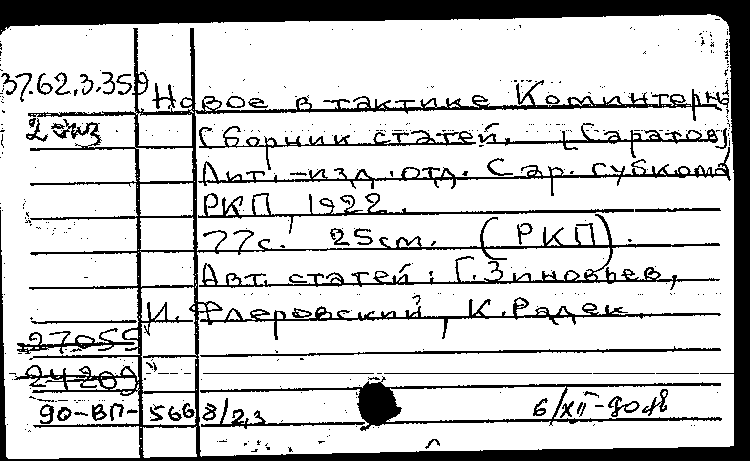 37.62.3.359
Новое в тактике Коминтерна
2 экз
Сборник статей. [Саратов]
Лит.-изд. отд. Сар. губкома
РКП, 1922.
77с. 25см. (РКП).
Авт. статей: Г.Зиновьев,
И. Флеровский, К.Радек.
27055
24209
90-ВП-5668/2,3
6/XII-90